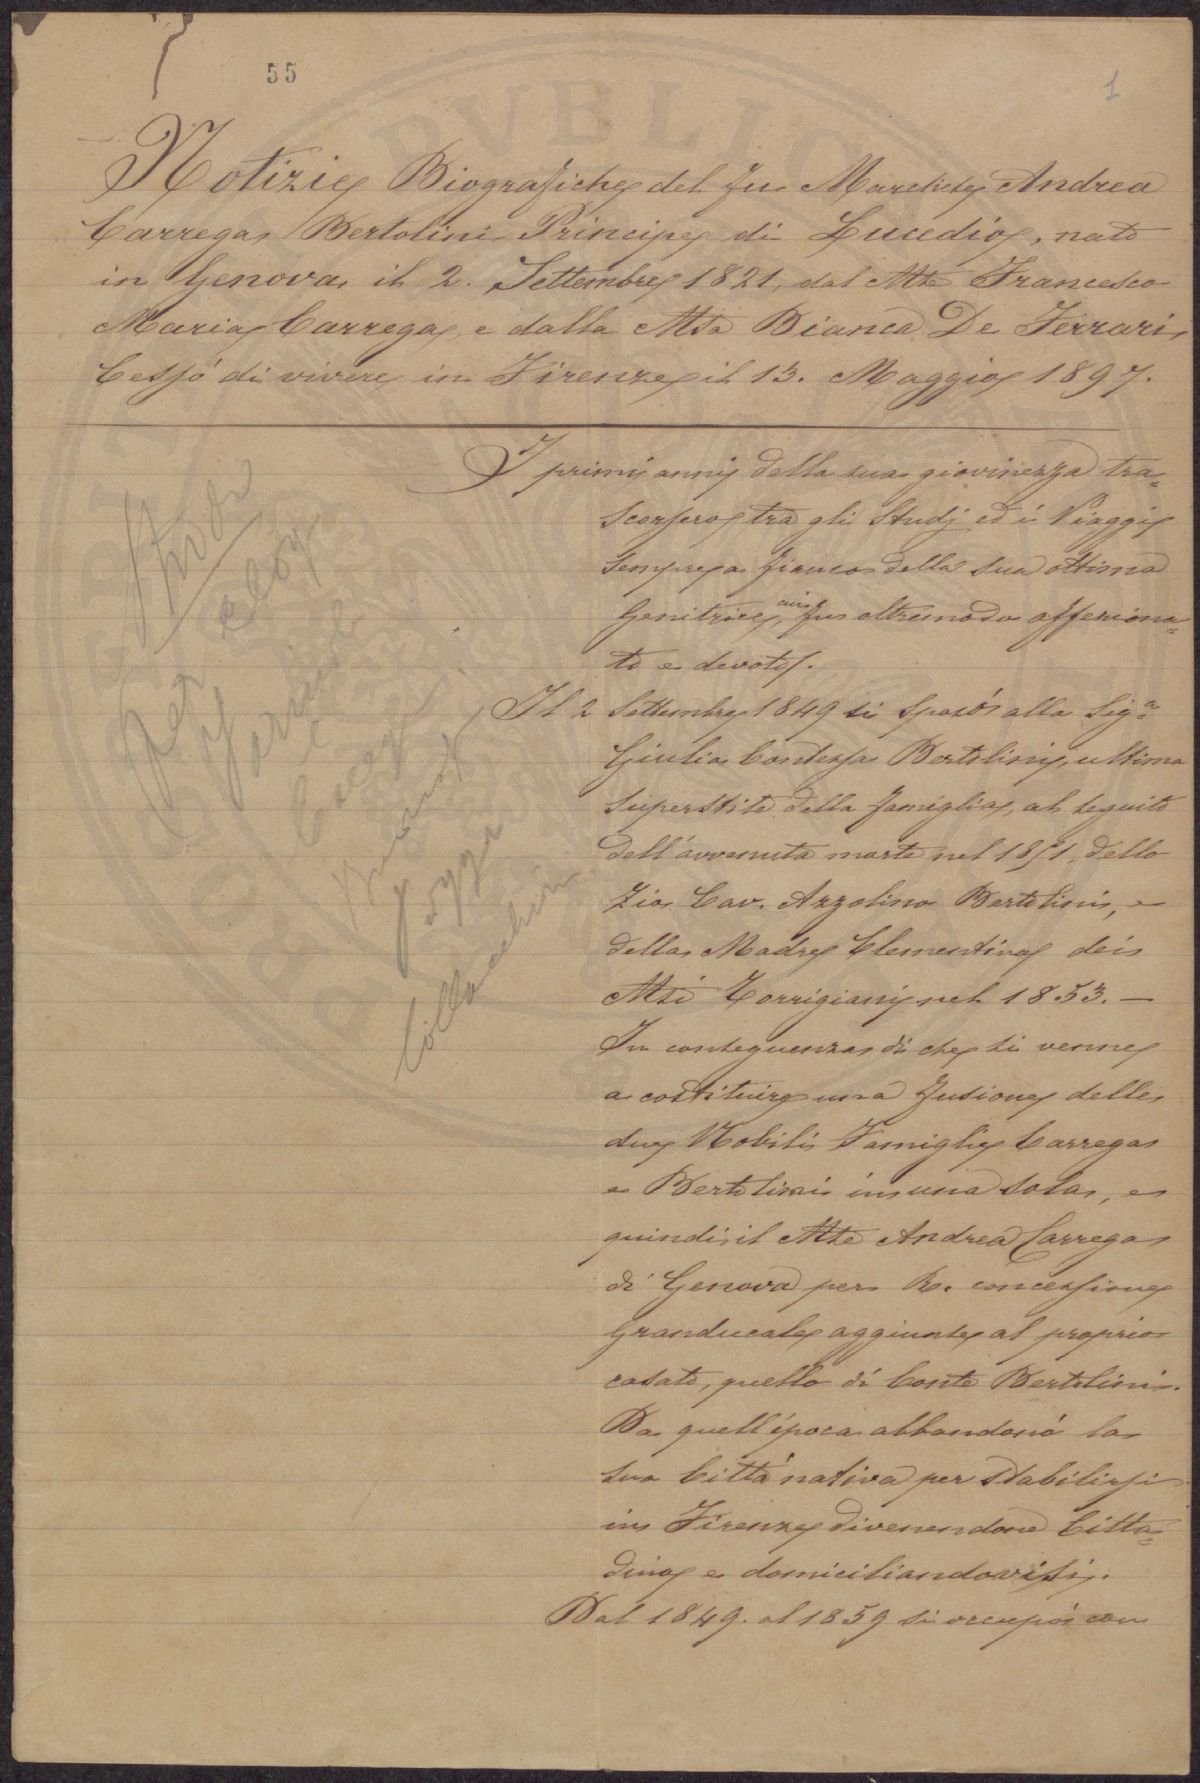 55
1
Notizie Biografiche del fu Marchese Andrea
Carrega Bertolini Principe di Lucedio, nato
in Genova il 2. Settembre 1821, dal Mse Francesco
Maria Carrega, e dalla Msa Bianca De Ferrari,
Cessò di vivere in Firenze il 13. Maggio 1897.
I primi anni della sua giovinezza tra=
scorsero tra gli Studj ed i Viaggi
sempre a fianco della sua ottima
Genitrice, cui fu oltremodo affeziona=
to e devoto.
Il 2 Settembre 1849 si sposò alla Sig.a
Giulia Contessa Bertolini, ultima
superstite della famiglia, al seguito
dell'avvenuta morte nel 1851, dello
Zio Cav. Azzolino Bertolini, e
della Madre Clementina dei
Msi Torrigiani nel 1853. —
In conseguenza di che si venne
a costituire una fusione delle
due Nobili Famiglie Carrega
e Bertolini in una sola, e
quindi il Mse Andrea Carrega
di Genova per R. concessione
Granducale aggiunse al proprio
casato, quello di Conte Bertolini.
Da quell'epoca abbandonò la
sua Città nativa per stabilirsi
in Firenze divenendone Citta=
dino e domiciliandovisi.
Dal 1849. al 1859 si occupò con